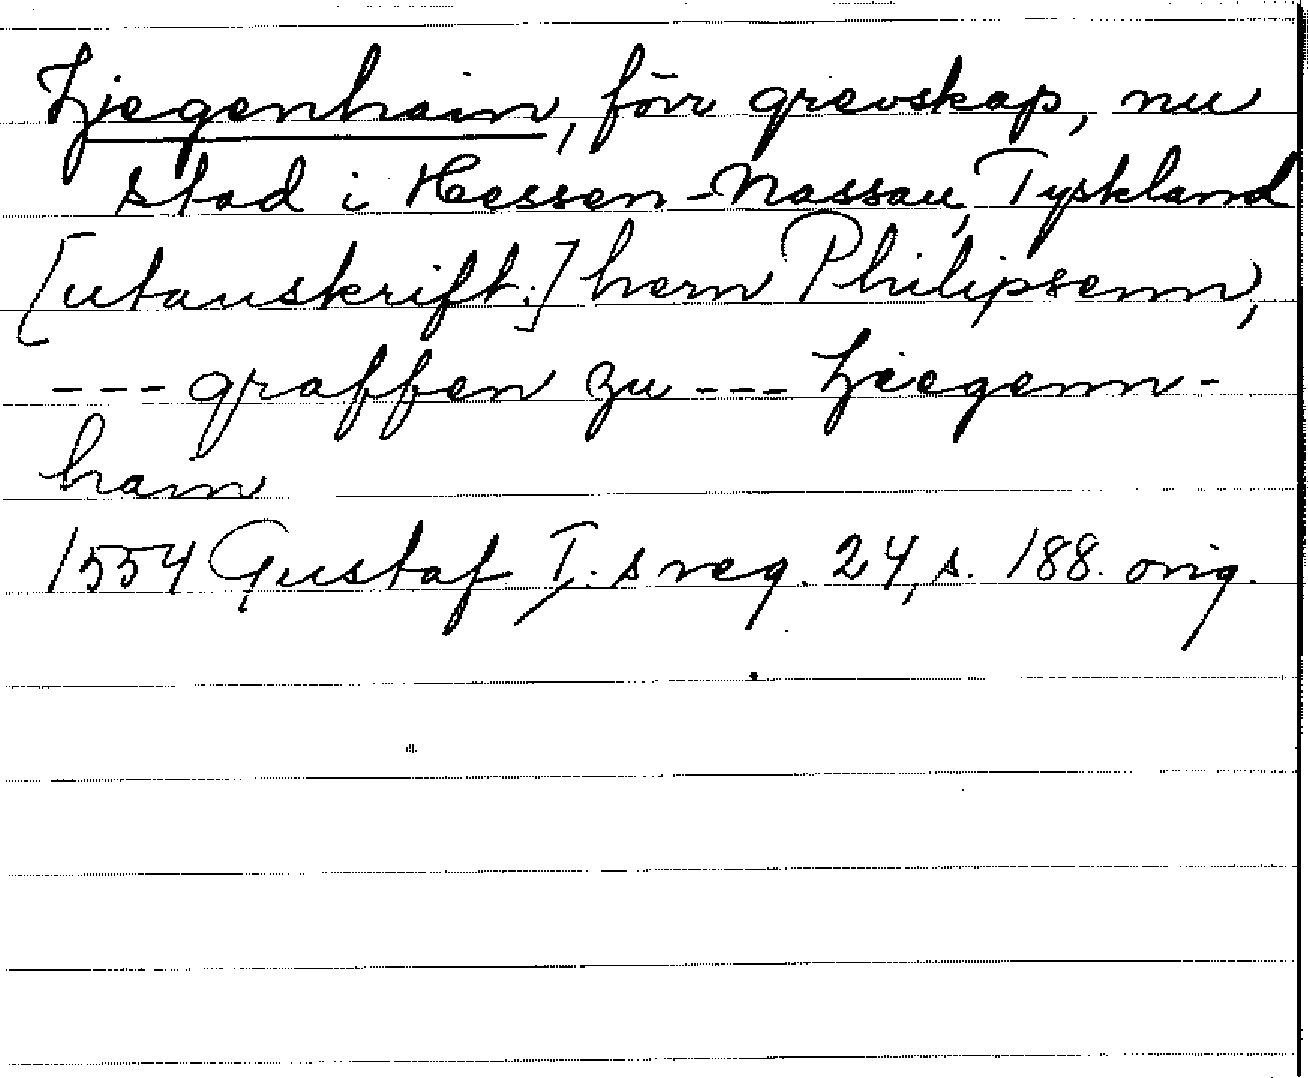 Ziegenhain, förr grevskap, nu
stad i Hessen-Nassau, Tyskland
[utanskrift:] hern Philipsenn,
--- graffen zu --- Ziegenn-
hain
1554 Gustaf I:s reg. 24, s. 188. orig.